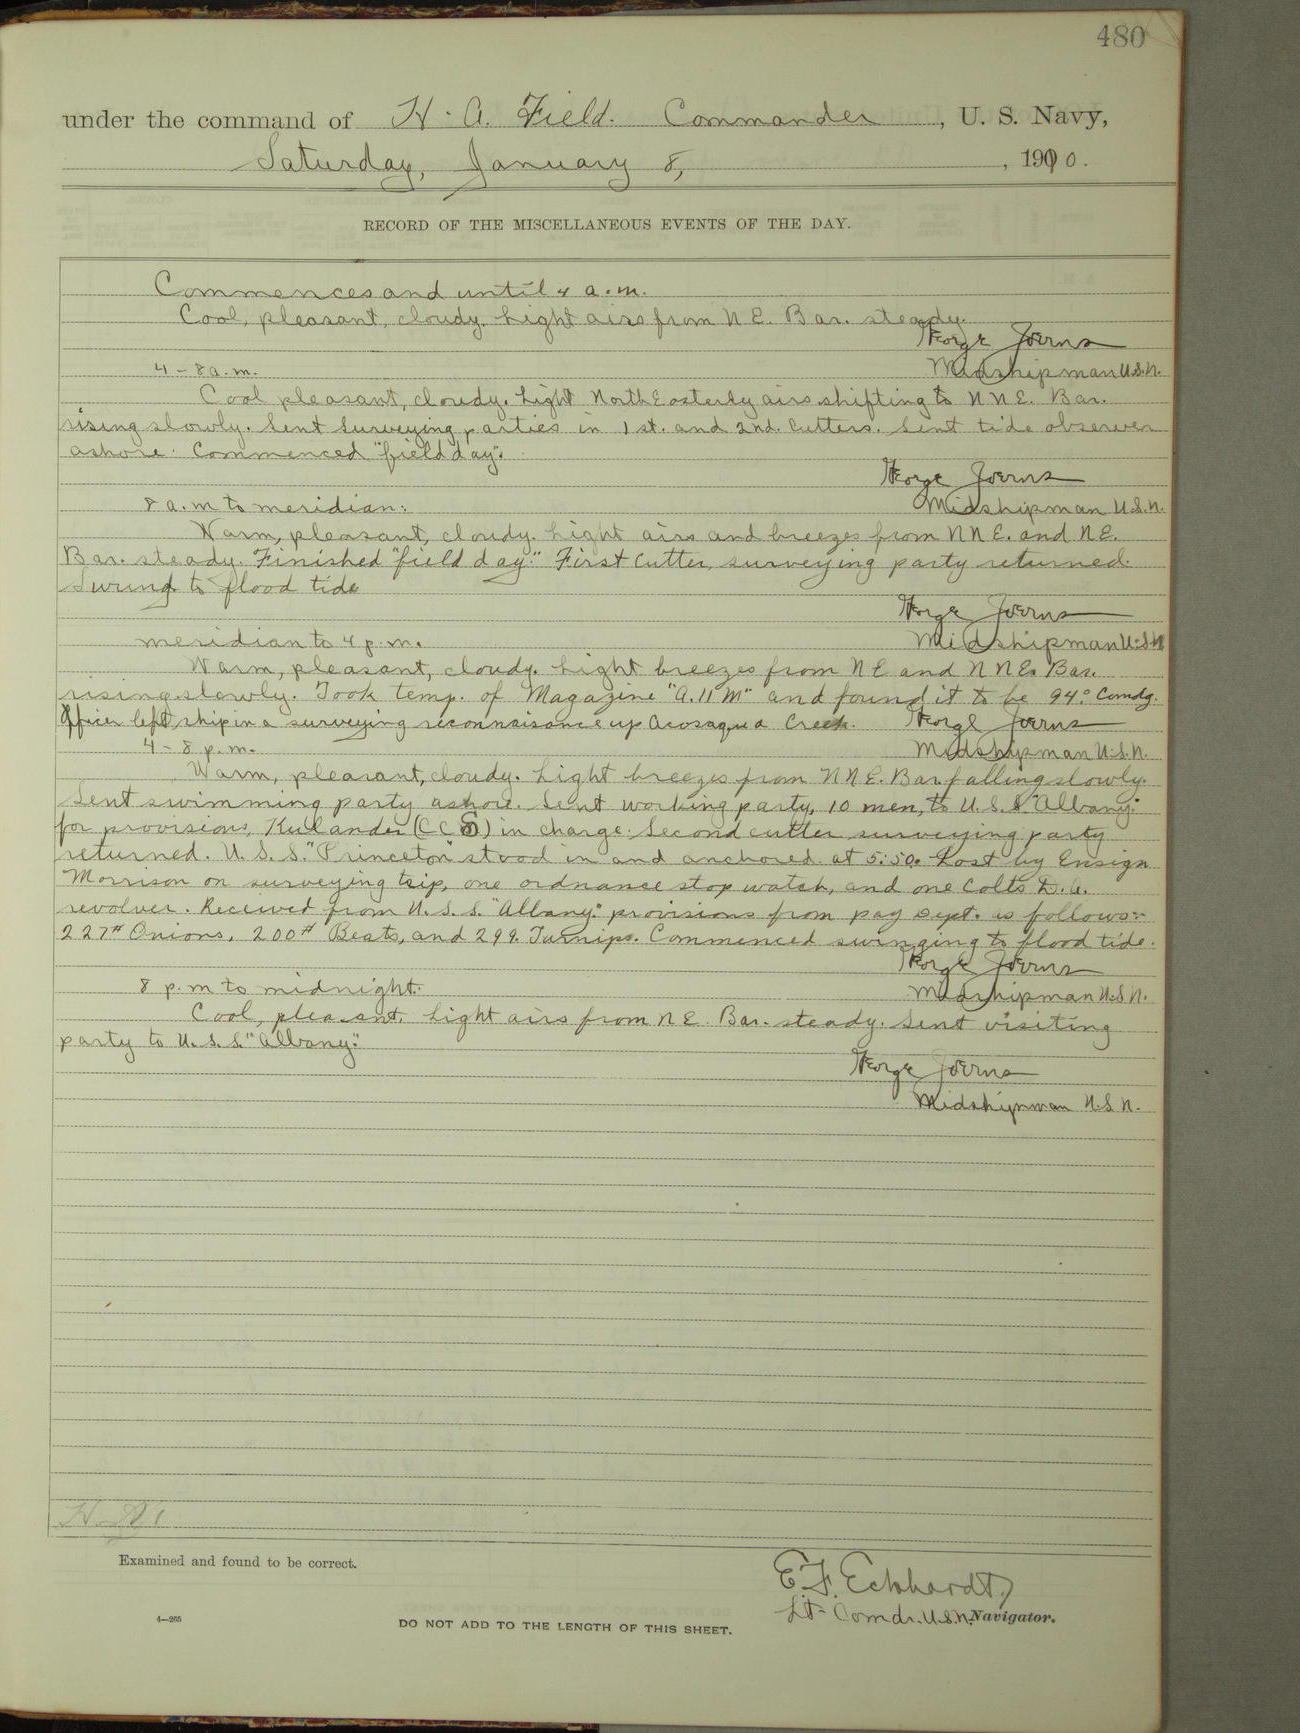 480
under the command of H. A. Field. Commander, U. S. Navy,
Saturday, January 8, 1910.
RECORD OF THE MISCELLANEOUS EVENTS OF THE DAY.
Commences and until 4 a.m.
Cool, pleasant, cloudy. Light airs from N E. Bar. steady.
George Joerns
4 - 8 a.m. Midshipman U.S.N.
Cool pleasant, cloudy. Light North Easterly airs shifting to N N E. Bar.
rising slowly. Sent surveying parties in 1st. and 2nd. Cutters. Sent tide observer
ashore. Commenced "field day".
George Joerns
8 a.m to meridian: Midshipman U.S.N.
Warm, pleasant, cloudy. Light airs and breezes from N N E. and N E.
Bar. steady. Finished "field day." First Cutter, surveying party returned.
Swung to flood tide
George Joerns
meridian to 4 p.m. Midshipman U.S.N
Warm, pleasant, cloudy. Light breezes from N E and N N E. Bar.
rising slowly. Took temp. of Magazine "A. 11 M" and found it to be 94.° Comdg.
Officer left ship in a surveying reconnaisance up Acosaqua Creek. George Joerns
4 - 8 p.m. Midshipman U.S.N.
Warm, pleasant, cloudy. Light breezes from N N E. Bar falling slowly.
Sent swimming party ashore. Sent working party, 10 men, to U.S.S. "Albany."
for provisions, (CCS) in charge. Second cutter surveying party
returned. U. S. S. "Princeton" stood in and anchored at 5:50. Lost by Ensign
Morrison on surveying trip, one ordnance stop watch, and one Colts D.A.
revolver. Received from U. S. S. "Albany." provisions from pay dept. as follows:-
227# Onions, 200# Beets, and 299. Turnips. Commenced swinging to flood tide.
George Joerns
8 p.m to midnight. Midshipman U.S.N.
Cool, pleasant. Light airs from N E. Bar. steady. Sent visiting
party to U. S. S. "Albany."
George Joerns
Midshipman U.S.N.
Examined and found to be correct.
E. F. Eckhardt,
Lt- Comdr. U.S.N. Navigator.
4—265
DO NOT ADD TO THE LENGTH OF THIS SHEET.